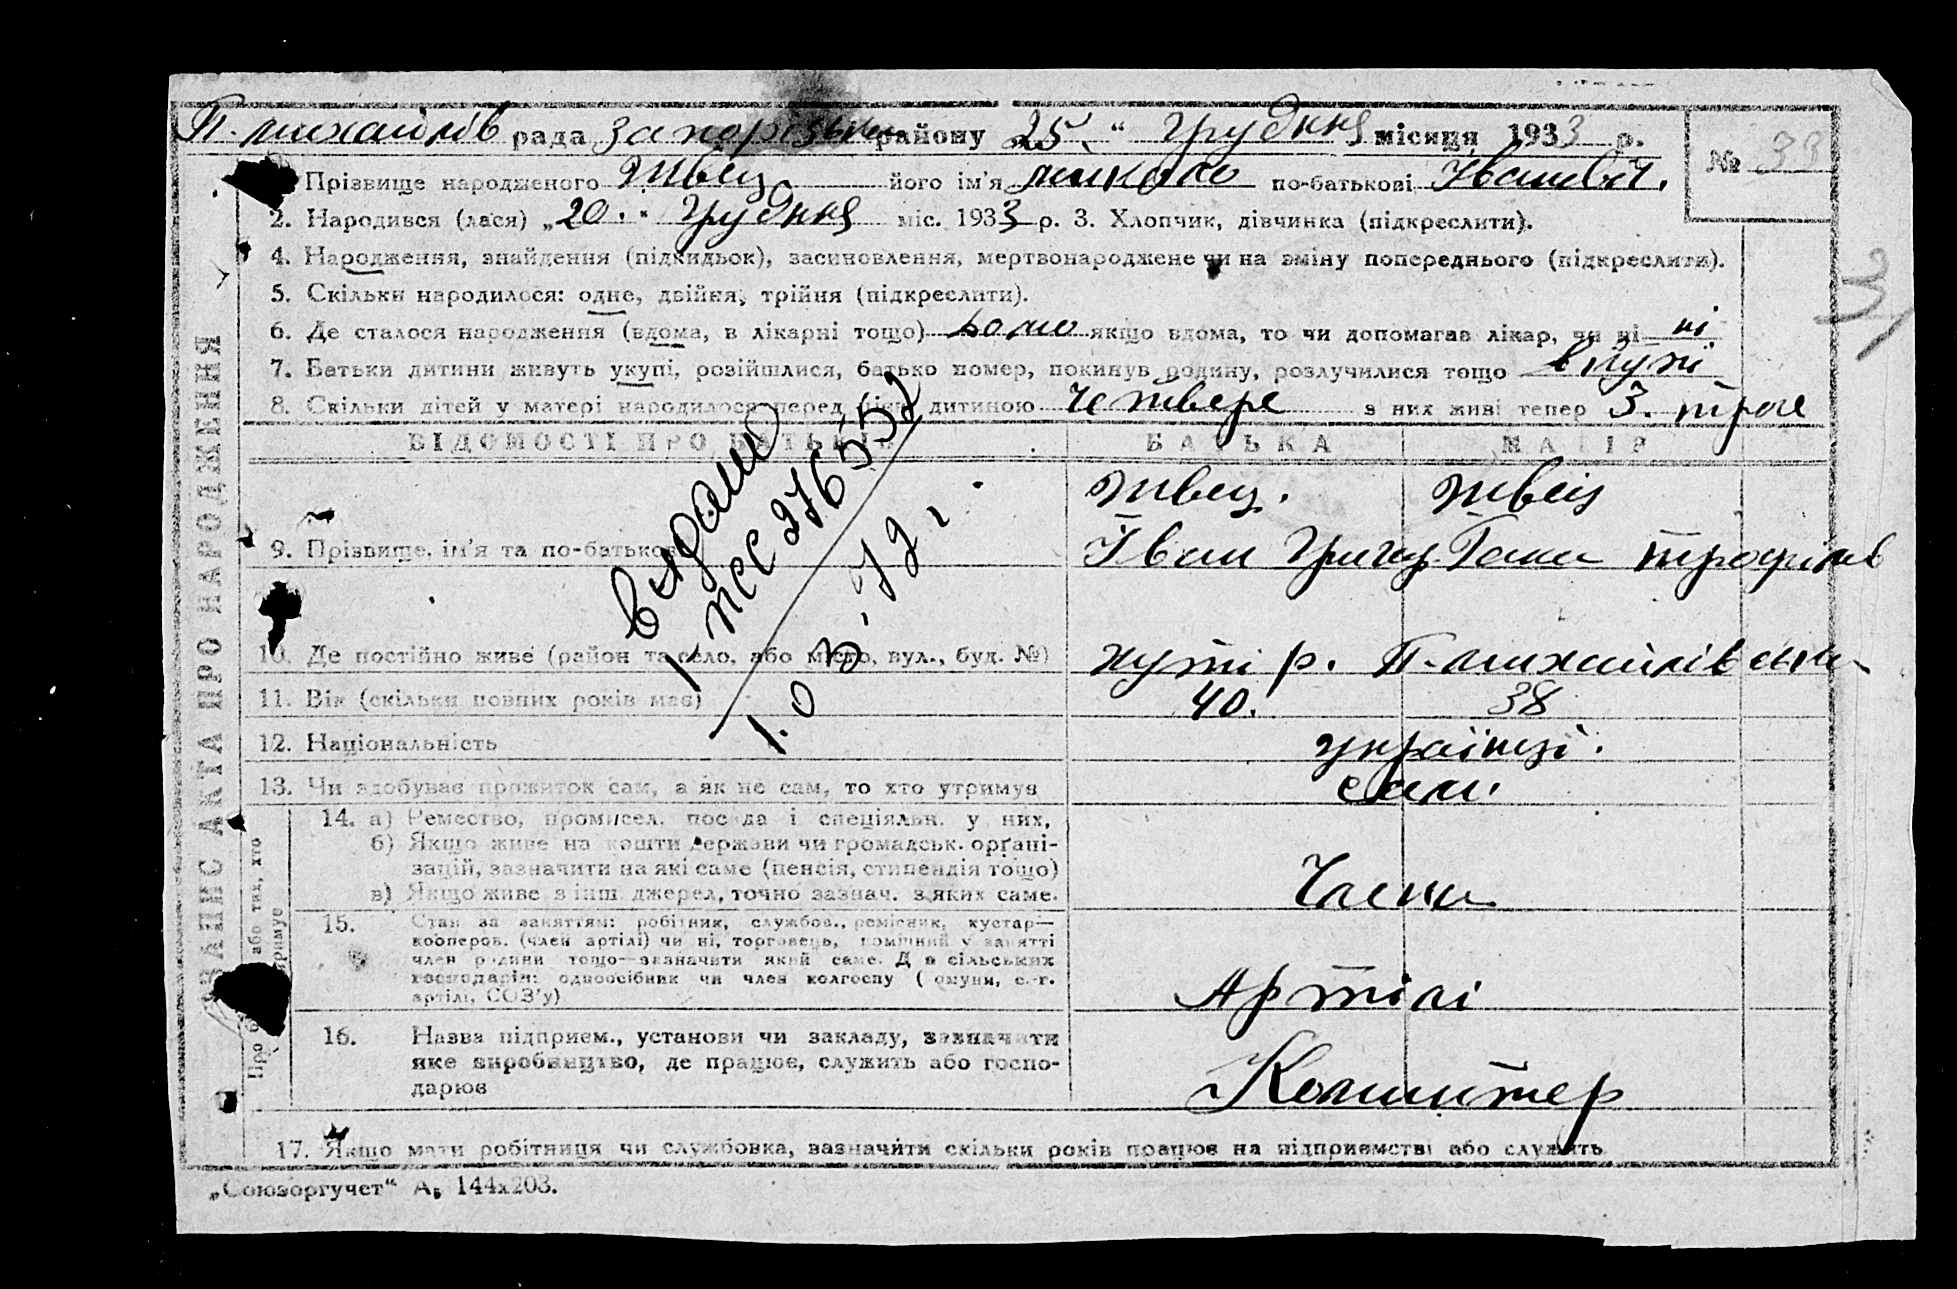 П. михайлів рада запорізьк району 25 " грудння місяця 1933 р.
№ 33
Прізвище народженого Швец його ім'я миколо по-батькові Іванович.
2. Народився (лася) „20." грудння міс. 1933 р. 3. Хлопчик, дівчинка (підкреслити).
4. Народження, знайдення (підкидьок), засиновлення, мертвонароджене чи на зміну попереднього (підкреслити).
5. Скільки народилося: одне, двійня, трійня (підкреслити).
6. Де сталося народження (вдома, в лікарні тощо) домо якщо вдома, то чи допомагав лікар, чи ні ні
7. Батьки дитини живуть укупі, розійшлися, батько помер, покинув родину, розлучилися тощо вкупі
8. Скільки дітей у матері народилося перед цією дитиною четвере з них живі тепер 3. трое
ЗАПИС АКТА ПРО НАРОДЖЕННЯ
ВІДОМОСТІ ПРО БАТЬКІВ БАТЬКА МАТІР
видано
1-жс 276552
1.03.72г
9. Прізвище, ім'я та по-батькові
Швец. Швець
Іван Григор. Ганна трофимів
10. Де постійно живе (район та село, або місто, вул., буд. №) хутір. П-михайлівськи
11. Вік (скільки повних років має) 40. 38
12. Національність українці.
13. Чи здобуває прожиток сам, а як не сам, то хто утримує сами
14. а) Ремество, промисел, посада і спеціяльн. у них,
б) Якщо живе на кошти держави чи громадськ. орґані-
зацій, зазначити на які саме (пенсія, стипендія тощо)
в) Якщо живе з інш. джерел, точно зазнач. з яких саме.
Члени
15. Стан за заняттям: робітник, службов., ремісник, кустар—
кооперов. (член артілі) чи ні, торговець, помічний у занятті
член родини тощо—зазначити який саме. Для сільських
господарів: одноосібник чи член колгоспу (комуни, с.-г.
артілі, СОЗ'у)
Артілі
16. Назва підприєм., установи чи закладу, зазначити
яке виробництво, де працює, служить або госпо-
дарює
Коминтер
17. Якщо мати робітниця чи службовка, зазначити скільки років працює на підприємстві або служить
„Союзоргучет" А, 144х203.